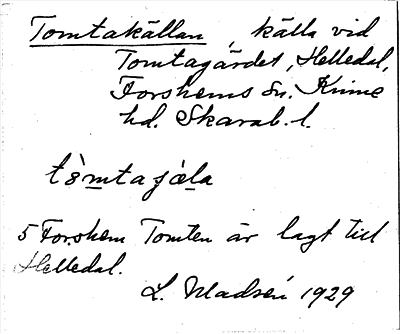 Tomtakällan, källa vid
Tomtagärdet, Helledal,
Forshems sn. Kinne
hd. Skarab. l.
tòmtaʃæla
5 Forshem Tomten är lagt till
Helledal.
L. Madsén 1929